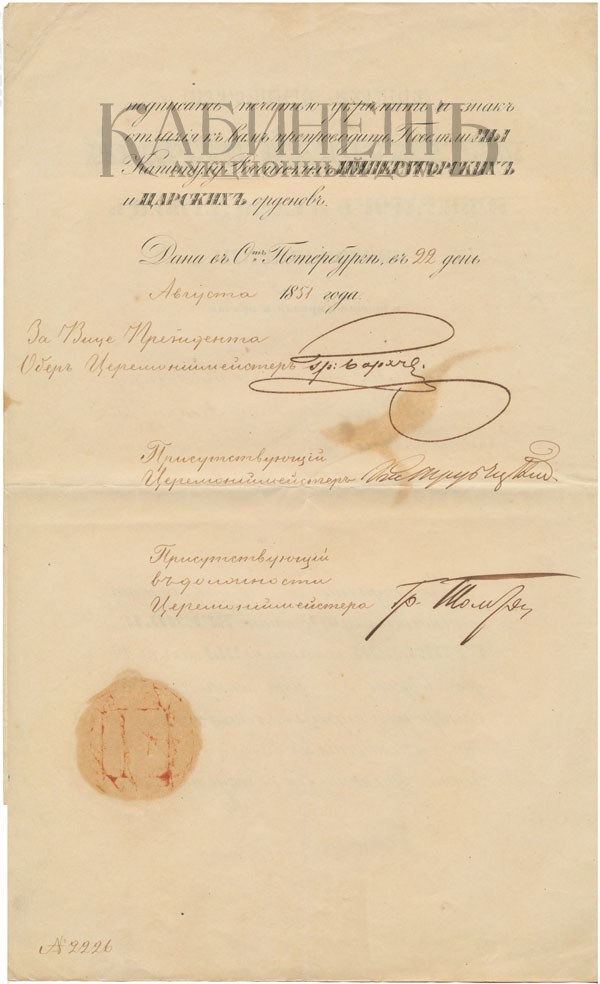 КАБИНЕТЪ
АУКЦИОННЫЙ ДОМ
подписать, печатью укрѣпить и знакъ
отличія къ вамъ препроводить Повелѣли МЫ
Капитулу Россійскихъ ИМПЕРАТОРСКИХЪ
и ЦАРСКИХЪ орденовъ.
Дана въ С.тъ Петербургѣ, въ 22 день
Августа 1851 года.
За Вице Президента
Оберъ Церемоніймейстеръ гр: Борхъ.
Присутствующій
Церемоніймейстеръ
Присутствующій
въ должности
Церемоніймейстера Гр.
№ 2226